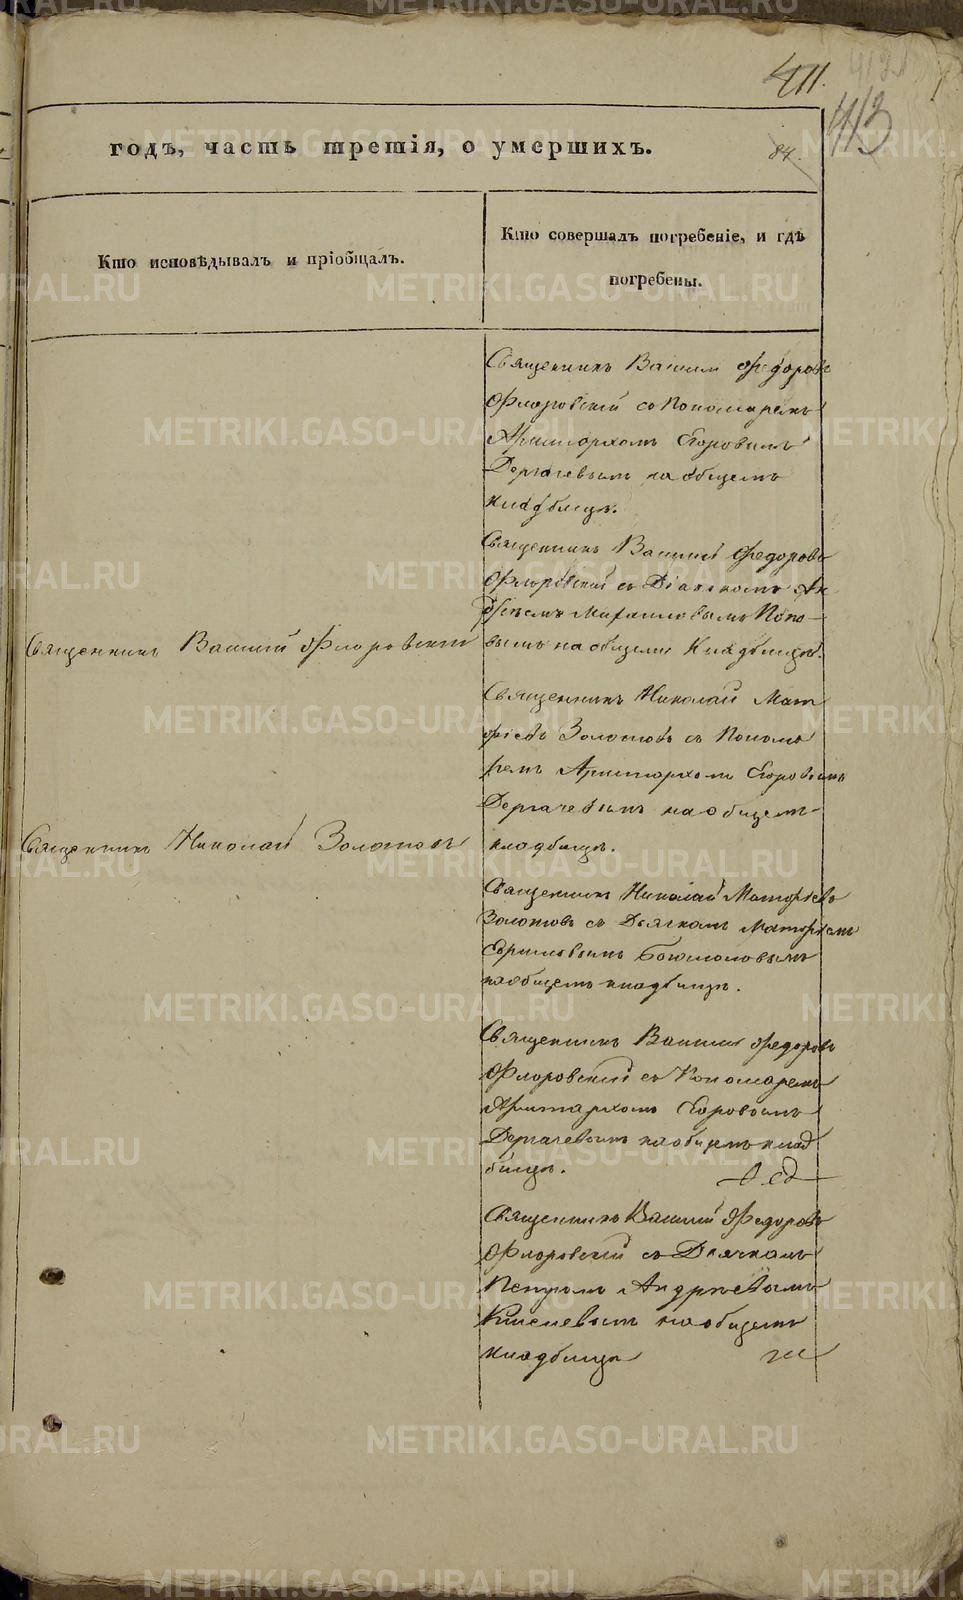 411.
413
годъ, часть третія, о умершихъ.
84.
Кто исповѣдывалъ и пріобщалъ.
Кто совершалъ погребеніе, и гдѣ
погребены.
Священникъ Василій Федоровъ
Флоровскій со Пономаремъ
Аристархомъ Егоровымъ
Дергачевымъ на общемъ
кладбищѣ.
Священникъ Василій Федоровъ
Флоровскій съ Діакономъ
Михайловымъ Попо-
вымъ на общемъ Кладбищѣ.
Священникъ Василій Флоровскій
Священникъ Николай Мат
фіевъ Золотовъ съ Понома
ремъ Аристархомъ Егоровымъ
Дергачевымъ на общемъ
кладбищѣ.
Священникъ Николай Золотовъ
Священникъ Николай Матфіевъ
Золотовъ съ Дьячкомъ Матфіемъ
Богомоловымъ
на общемъ кладбищѣ.
Священникъ Василій Федоровъ
Флоровскій съ Пономаремъ
Аристархомъ Егоровымъ
Дергачевымъ на общемъ клад
бищѣ.
Священникъ Василій Федоровъ
Флоровскій съ Дьячкомъ
Петромъ Андрѣевымъ
Киселевымъ на общемъ
кладбищѣ
METRIKI.GASO-URAL.RU